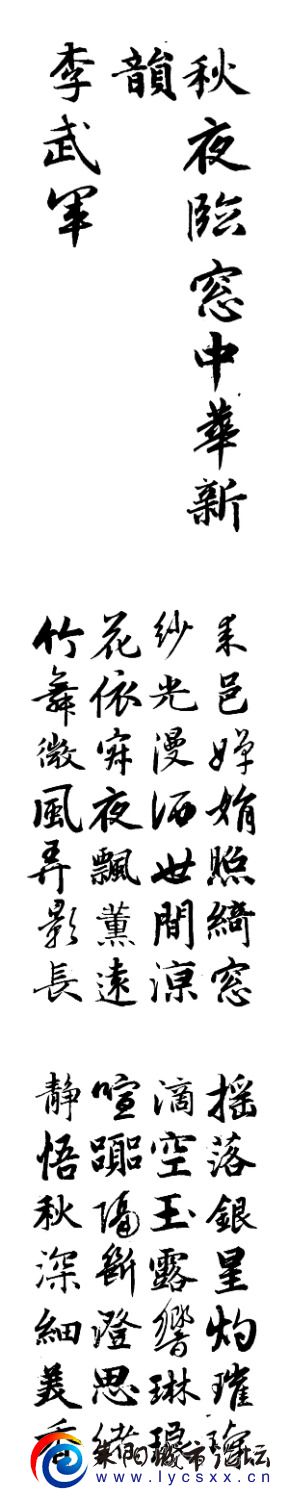 秋夜臨窓中華新
韻
李武軍
耒邑嬋娟照綺窓
紗光漫洒世間涼
花依穽夜飄薰遠
竹舞微風弄影長
搖落銀星灼璀璨
滴空玉露響琳琅
喧躁隔斷澄思緒
静悟秋深細美香
耒阳城市论坛
www.lycsxx.cn